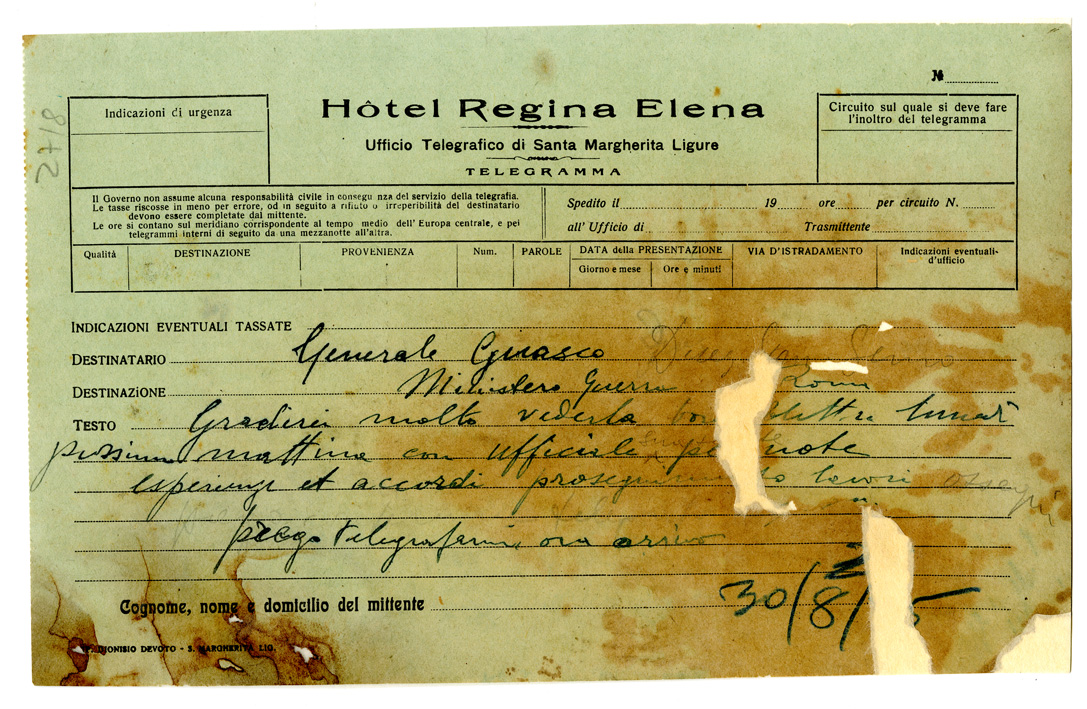 2718
№
Indicazioni di urgenza
Hôtel Regina Elena
Ufficio Telegrafico di Santa Margherita Ligure
TELEGRAMMA
Circuito sul quale si deve fare
l'inoltro del telegramma
Il Governo non assume alcuna responsabilità civile in consegu nza del servizio della telegrafia.
Le tasse riscosse in meno per errore, od in seguito a rifiuto o irreperibilità del destinatario
devono essere completate dal mittente.
Le ore si contano sul meridiano corrispondente al tempo medio dell' Europa centrale, e pei
telegrammi interni di seguito da una mezzanotte all'altra.
Spedito il 19 ore per circuito N.
all' Ufficio di Trasmittente
Qualità DESTINAZIONE PROVENIENZA Num. PAROLE DATA della PRESENTAZIONE VIA D'ISTRADAMENTO Indicazioni eventuali
d'ufficio
Giorno e mese Ore e minuti
INDICAZIONI EVENTUALI TASSATE
DESTINATARIO Generale Guasco
DESTINAZIONE Ministero Guerra Roma
TESTO Gradirei molto vederla
mattina con ufficiale note
esperienze et accordi lavori ossequi
prego telegrafarmi ora arrivo
30/8/ 5
Cognome, nome e domicilio del mittente
DIONISIO DEVOTO - S. MARGHERITA LIG.